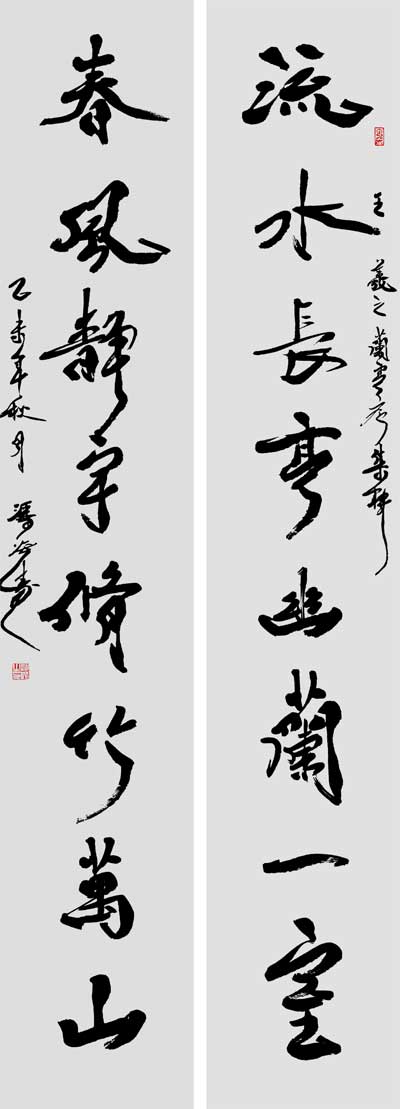 流水長亭幽蘭一室
王羲之蘭亭序集聯
春風靜宇脩竹萬山
乙未年秋月